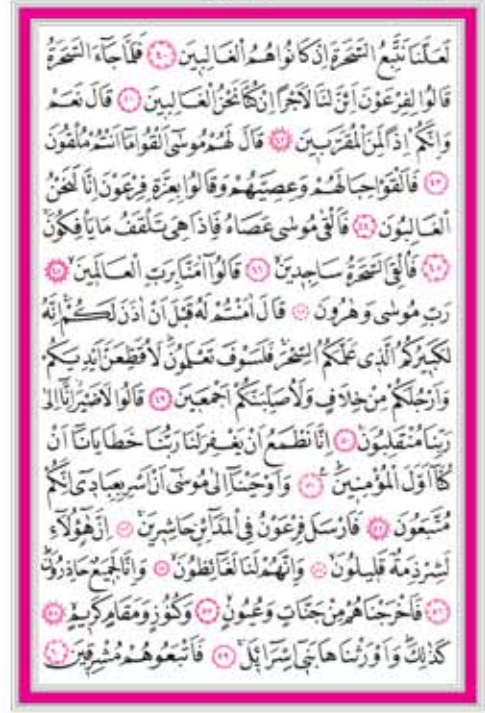 لَعَلَّنَا نَتَّبِعُ السَّحَرَةَ اِنْ كَانُوا هُمُ الْغَالِب۪ينَ ﴿٤٠﴾ فَلَمَّا جَٓاءَ السَّحَرَةُ
قَالُوا لِفِرْعَوْنَ اَئِنَّ لَنَا لَاَجْراً اِنْ كُنَّا نَحْنُ الْغَالِب۪ينَ ﴿٤١﴾ قَالَ نَعَمْ
وَاِنَّكُمْ اِذاً لَمِنَ الْمُقَرَّب۪ينَ ﴿٤٢﴾ قَالَ لَهُمْ مُوسٰٓى اَلْقُوا مَٓا اَنْتُمْ مُلْقُونَ
﴿٤٣﴾ فَاَلْقَوْا حِبَالَهُمْ وَعِصِيَّهُمْ وَقَالُوا بِعِزَّةِ فِرْعَوْنَ اِنَّا لَنَحْنُ
الْغَالِبُونَ ﴿٤٤﴾ فَاَلْقٰى مُوسٰى عَصَاهُ فَاِذَا هِيَ تَلْقَفُ مَا يَأْفِكُونَۚ
﴿٤٥﴾ فَاُلْقِيَ السَّحَرَةُ سَاجِد۪ينَۙ ﴿٤٦﴾ قَالُٓوا اٰمَنَّا بِرَبِّ الْعَالَم۪ينَۙ ﴿٤٧﴾
رَبِّ مُوسٰى وَهٰرُونَ ﴿٤٨﴾ قَالَ اٰمَنْتُمْ لَهُ قَبْلَ اَنْ اٰذَنَ لَكُمْۚ اِنَّهُ
لَكَب۪يرُكُمُ الَّذ۪ي عَلَّمَكُمُ السِّحْرَۚ فَلَسَوْفَ تَعْلَمُونَۜ لَاُقَطِّعَنَّ اَيْدِيَكُمْ
وَاَرْجُلَكُمْ مِنْ خِلَافٍ وَلَاُصَلِّبَنَّكُمْ اَجْمَع۪ينَ ﴿٤٩﴾ قَالُوا لَا ضَيْرَۘ اِنَّٓا اِلٰى
رَبِّنَا مُنْقَلِبُونَۚ ﴿٥٠﴾ اِنَّا نَطْمَعُ اَنْ يَغْفِرَ لَنَا رَبُّنَا خَطَايَانَٓا اَنْ
كُنَّٓا اَوَّلَ الْمُؤْمِن۪ينَۜ ﴿٥١﴾ وَاَوْحَيْنَٓا اِلٰى مُوسٰٓى اَنْ اَسْرِ بِعِبَاد۪ٓي اِنَّكُمْ
مُتَّبَعُونَ ﴿٥٢﴾ فَاَرْسَلَ فِرْعَوْنُ فِي الْمَدَٓائِنِ حَاشِر۪ينَۚ ﴿٥٣﴾ اِنَّ هٰٓؤُ۬لَٓاءِ
لَشِرْذِمَةٌ قَل۪يلُونَۙ ﴿٥٤﴾ وَاِنَّهُمْ لَنَا لَغَٓائِظُونَۙ ﴿٥٥﴾ وَاِنَّا لَجَم۪يعٌ حَاذِرُونَۜ
﴿٥٦﴾ فَاَخْرَجْنَاهُمْ مِنْ جَنَّاتٍ وَعُيُونٍۙ ﴿٥٧﴾ وَكُنُوزٍ وَمَقَامٍ كَر۪يمٍۙ ﴿٥٨﴾
كَذٰلِكَۜ وَاَوْرَثْنَاهَا بَن۪ٓي اِسْرَٓائ۪لَۜ ﴿٥٩﴾ فَاَتْبَعُوهُمْ مُشْرِق۪ينَ ﴿٦٠﴾